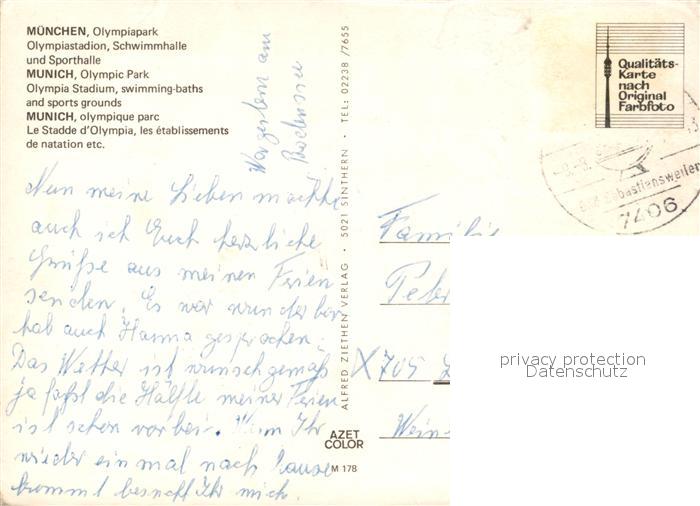 MÜNCHEN, Olympiapark
Olympiastadion, Schwimmhalle
und Sporthalle
MUNICH, Olympic Park
Olympia Stadium, swimming-baths
and sports grounds
MUNICH, olympique parc
Le Stadde d'Olympia, les établissements
de natation etc.
Vorgestern am
Bodensee
Nun meine Lieben möchte
auch ich Euch herzliche
Grüße aus meinen Ferien
senden. Es war wunderbar
hab auch Hanna gesprochen.
Das Wetter ist wunschgemäß
ja fast die Hälfte meiner Ferien
ist schon vorbei. Wenn Ihr
wieder einmal nach Hause
kommt besucht Ihr mich.
ALFRED ZIETHEN VERLAG · 5021 SINTHERN · TEL: 02238/7655
AZET
COLOR
M 178
Qualitäts-
Karte
nach
Original
Farbfoto
Bad Sebastiansweiler
7406
Familie
Peter
X705
Wein
privacy protection
Datenschutz